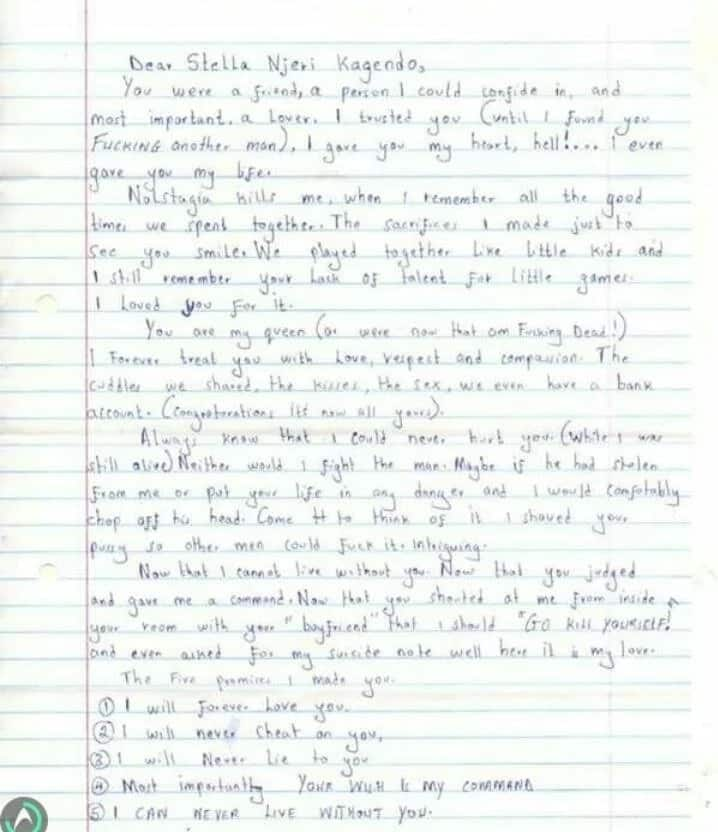 Dear Stella Njeri Kagendo,
You were a friend, a person I could confide in, and
most important, a Lover. I trusted you (until I found you
FUCKING another man), I gave you my heart, hell!.... I even
gave you my life.
Nolstagia kills me, when I remember all the good
times we spent together. The sacrifices I made just to
see you smile. We played together Like Little kids and
I still remember your Lack of talent for Little games.
I Loved you for it.
You are my queen (or were now that am Fucking Dead!)
I Forever treat you with Love, respect and compassion. The
cuddles we shared, the kisses, the sex, we even have a bank
account. (Congratorations Its now all yours).
Always know that I could never hurt you. (While I was
still alive) Neither would I fight the man. Maybe if he had stolen
from me or put your life in any danger and I would comfotably
chop off his head. Come tt to think of it I shaved your
pussy so other men could fuck it. Intriguing.
Now that I cannot live without you. Now that you judged
and gave me a command. Now that you shouted at me from inside
your room with your "boyfriend" that I should "GO KILL YOURSELF!"
and even asked for my suicide note well here it is my love.
The Five promises I made you.
① I will Forever Love you.
② I will never cheat on you,
③ I will Never Lie to you
④ Most importantly YOUR WISH IS MY COMMAND
⑤ I CAN NEVER LIVE WITHOUT YOU.